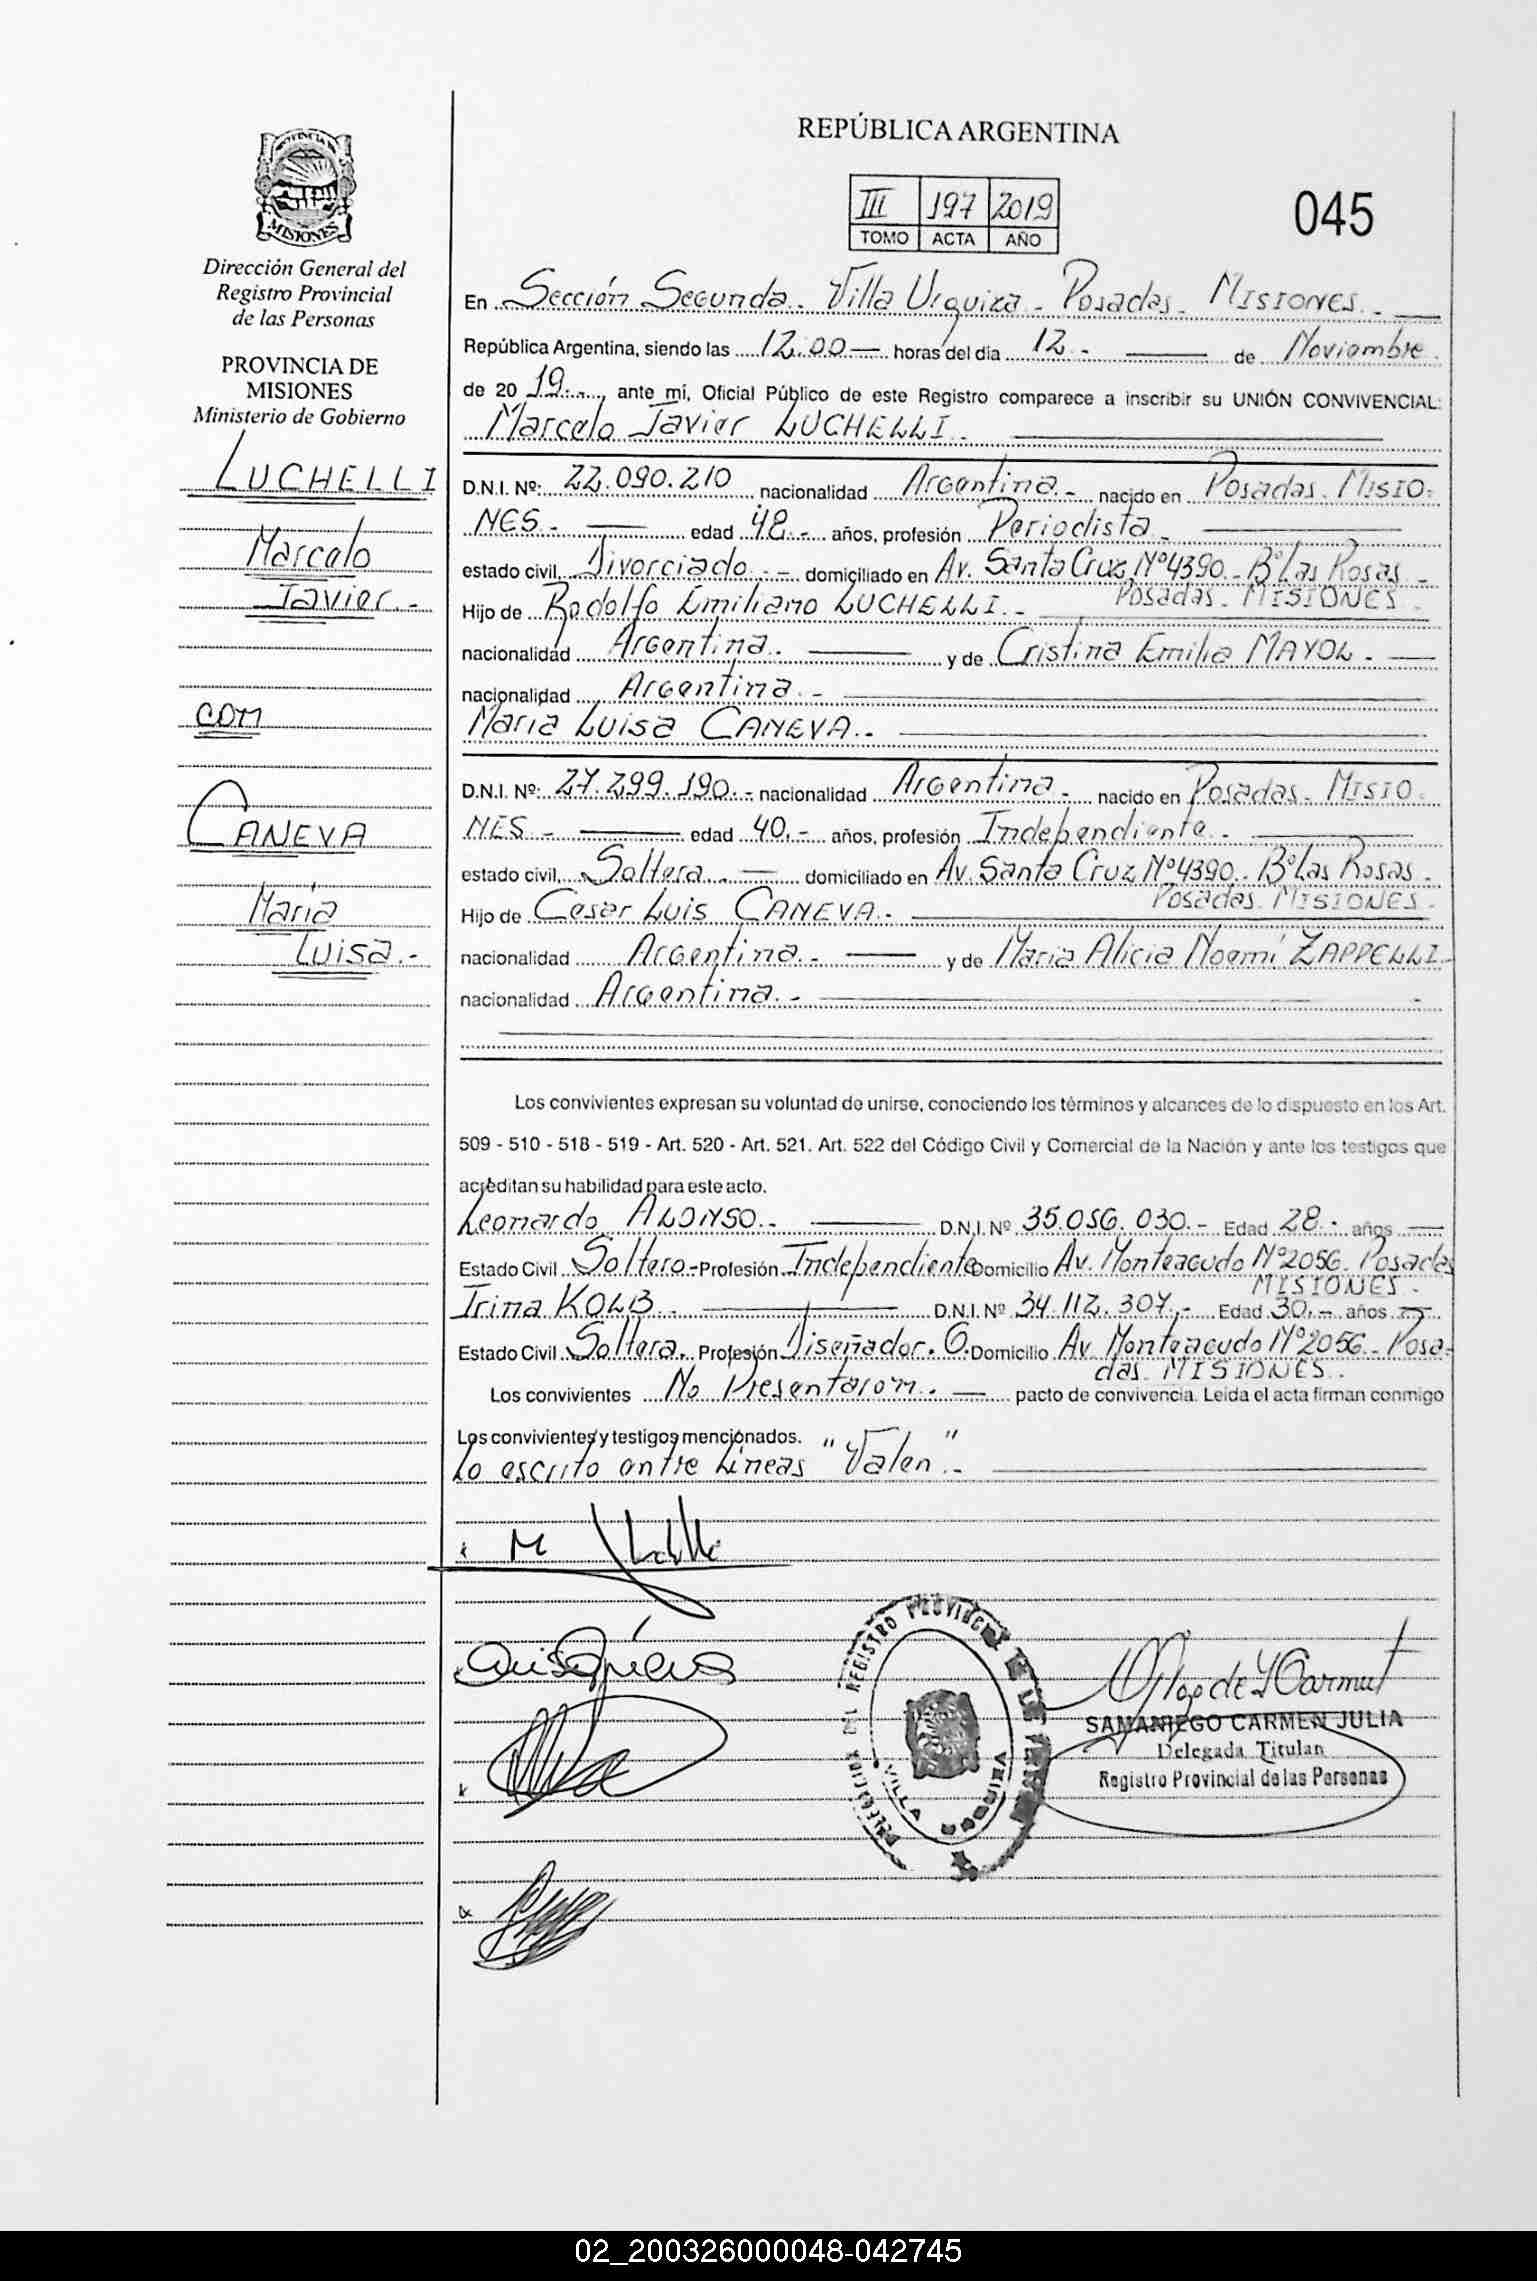 PROVINCIA DE
MISIONES
Dirección General del
Registro Provincial
de las Personas
PROVINCIA DE
MISIONES
Ministerio de Gobierno
LUCHELLI
Marcelo
Javier.-
con
CANEVA
Maria
Luisa.-
REPÚBLICA ARGENTINA
III 197 2019
TOMO ACTA AÑO
045
En Sección Segunda. Villa Urquiza - Posadas - MISIONES.-
República Argentina, siendo las 12.00 horas del día 12.- de Noviembre.
de 2019.-, ante mí, Oficial Público de este Registro comparece a inscribir su UNIÓN CONVIVENCIAL:
Marcelo Javier LUCHELLI.-
D.N.I. Nº: 22.090.210 nacionalidad Argentina.- nacido en Posadas. MISIO-
NES.- edad 48.- años, profesión Periodista.-
estado civil Divorciado.- domiciliado en Av. Santa Cruz Nº4390.- Bº Las Rosas -
Posadas - MISIONES.
Hijo de Rodolfo Emiliano LUCHELLI.-
nacionalidad Argentina. y de Cristina Emilia MAYOL.-
nacionalidad Argentina.-
Maria Luisa CANEVA.-
D.N.I. Nº: 27.299.190.- nacionalidad Argentina.- nacido en Posadas. MISIO-
NES.- edad 40.- años, profesión Independiente.-
estado civil Soltera. domiciliado en Av. Santa Cruz Nº4390.- Bº Las Rosas.
Posadas. MISIONES.-
Hijo de Cesar Luis CANEVA.-
nacionalidad Argentina.- y de Maria Alicia Noemí ZAPPELLI.-
nacionalidad Argentina.-
Los convivientes expresan su voluntad de unirse, conociendo los términos y alcances de lo dispuesto en los Art.
509 - 510 - 518 - 519 - Art. 520 - Art. 521. Art. 522 del Código Civil y Comercial de la Nación y ante los testigos que
acreditan su habilidad para este acto.
Leonardo ALONSO.- D.N.I. Nº 35.056.030.- Edad 28.- años
Estado Civil Soltero.- Profesión Independiente Domicilio Av. Monteagudo Nº2056. Posadas
MISIONES.
Irina KOLB.- D.N.I. Nº 34.112.307.- Edad 30.- años
Estado Civil Soltera. Profesión Diseñador. G. Domicilio Av. Monteagudo Nº2056.- Posa-
das. MISIONES.
Los convivientes No Presentaron.- pacto de convivencia. Leida el acta firman conmigo
Los convivientes y testigos mencionados.
Lo escrito entre Líneas "Valen".-
SAMANIEGO CARMEN JULIA
Delegada Titular
Registro Provincial de las Personas
02_200326000048-042745